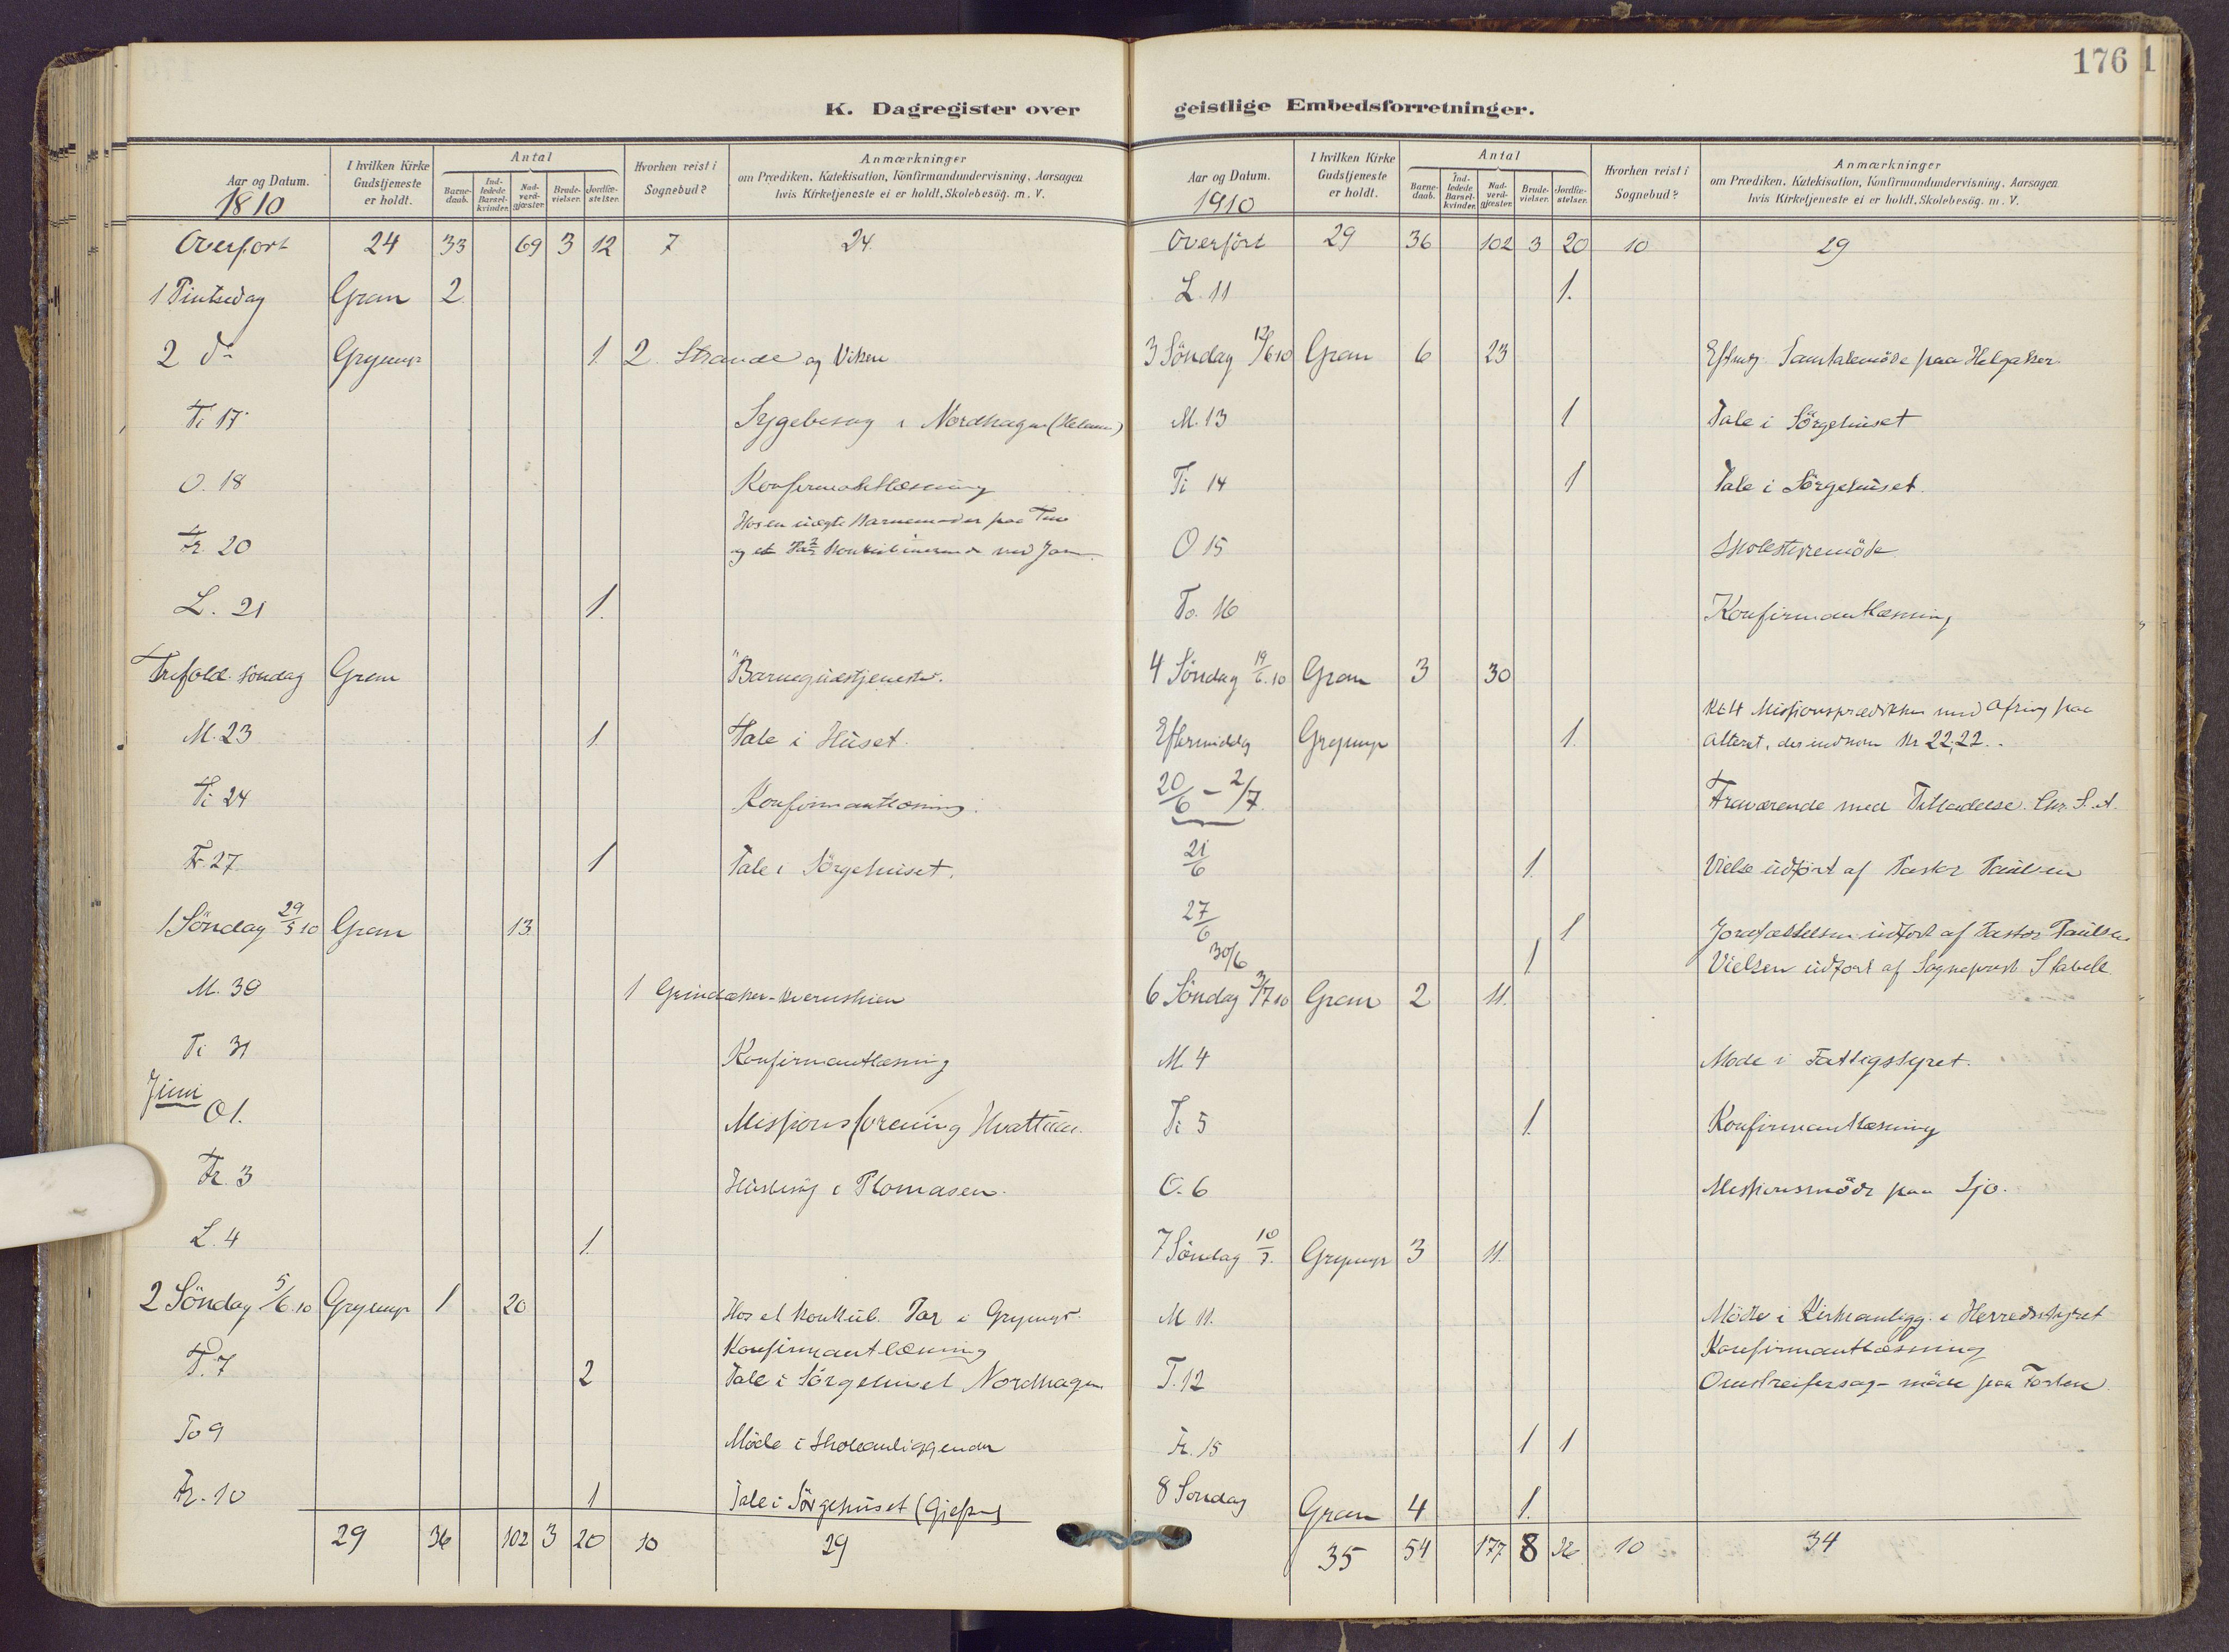 K. Dagregister over
Aar og Datum.
1810
I hvilken Kirke Gudstjeneste er holdt.
Antal
Barne-daab.
Ind-ledede Barsel-kvinder.
Nad-verd-gjæster.
Brude-vielser.
Jordfæ-stelser.
Hvorhen reist i Sognebud?
Anmærkninger
om Prædiken, Katekisation, Konfirmandundervisning, Aarsagen
hvis Kirketjeneste ei er holdt, Skolebesög. m. V.
Overfört 24 33 69 3 12 7 24
1 Pintsedag Gran 2
2 do Grymyr 1. 2 Strande og Viken
Ti 17 Sygebesøg i Nordhagen
O. 18 Konfirmantlæsning
Hos en uægte Barnemoder paa
Fr. 20 og et Par
L. 21 1.
Trefold. søndag Gran Barnegudstjeneste.
M. 23 1. Tale i Huset.
Ti 24 Konfirmantlæsning.
Fr. 27 1 Tale i Sörgehuset.
1 Söndag 29/5 10 Gran 13.
M. 30 1 Grindaker-
Ti 31 Konfirmantlæsning
Juni
O 1. Missionsforening Hvattum.
Fr. 3 Husbesøg i Plomasen.
L. 4 1.
2 Söndag 5/6 10 Grymyr 1 20
Hos et Konkub. Par i Grymyr.
Konfirmantlæsning
T. 7 2 Tale i Sörgehuset Nordhagen
To 9 Möde i Skoleanliggender
Fr. 10 1 Tale i Sörgehuset
29 36 102 3 20 10 29
176
1
geistlige Embedsforretninger.
Aar og Datum.
1910
I hvilken Kirke Gudstjeneste er holdt.
Antal
Barne-daab.
Ind-ledede Barsel-kvinder.
Nad-verd-gjæster.
Brude-vielser.
Jordfæ-stelser.
Hvorhen reist i Sognebud?
Anmærkninger
om Prædiken, Katekisation, Konfirmandundervisning, Aarsagen
hvis Kirketjeneste ei er holdt, Skolebesög. m. V.
Overfört 29 36 102 3 20 10 29
L. 11 1.
3 Söndag 12/6 10 Gran 6 23 Eftmdg Samtalemöde paa Helgaker.
M. 13 1 Tale i Sörgehuset
Ti 14 1 Tale i Sörgehuset.
O 15 Skolestyremöde
To. 16 Konfirmantlæsning
4 Söndag 19/6. 10 Gran 3 30
Kl 4 Missionsprædiken med Ofring paa
Eftermiddag Grymyr 1. Alteret, der indkom Kr 22,22.
20/6 - 2/7. Fraværende med Tilladelse.
21/6 1. Vielse udfört af Pastor Paulsen
27/6 1 Jordfæstelsen udfört af Pastor Paulsen
30/6 1 Vielsen udfört af Sogneprest Stabell
6 Söndag 3/7 10 Gran 2 11.
M. 4 Möde i Fattigstyret.
Ti 5 1. Konfirmantlæsning
O. 6 Missionsmöde paa Sjo.
7 Söndag 10/7. Grymyr 3 11.
M 11. Möde i Kirkeanligg. i Herredsstyret
Konfirmantlæsning
T. 12 Omstreifersag- möde paa
Fr. 15 1 1
8 Söndag Gran 4 1.
35 54 177 8 26 10 34